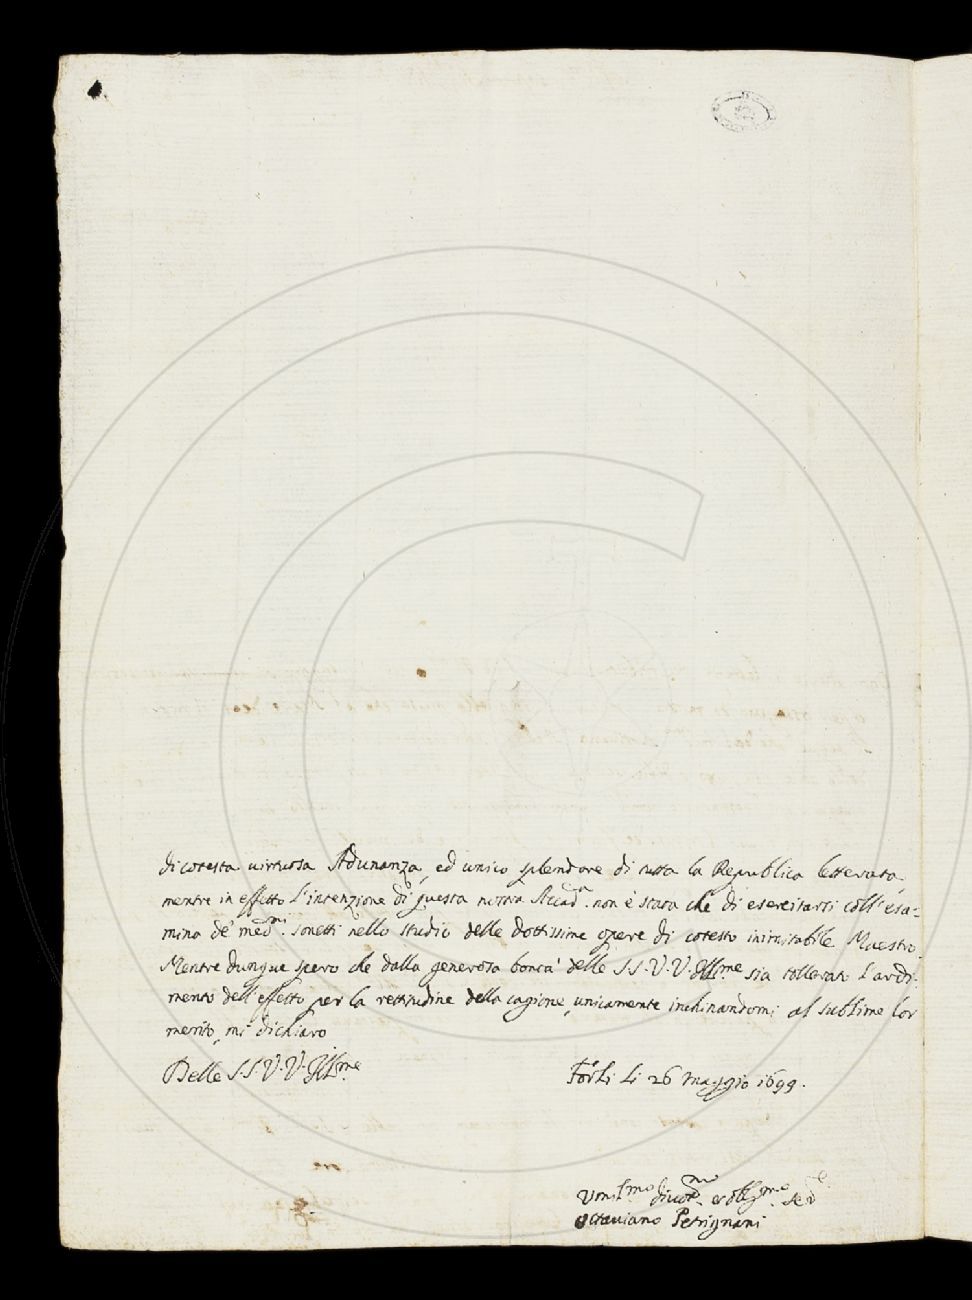 di cotesta virtuosa Adunanza, ed unico splendore di tutta la Republica letterata,
mentre in effetto l'intenzione di questa nostra Accad.ª non è stata che di esercitarsi coll'esa=
mina de' med.mi sonetti nello studio delle dottissime opere di cotesto inimitabile Maestro.
Mentre dunque spero che dalla generosa bontà delle SS.VV. Ill.me sia tollerato l'ardi=
mento dell'effetto per la rettitudine della cagione, unicamente inchinandomi al sublime lor
merito, mi dichiaro
Delle S.S. V.V. Ill.me
Forlì li 26 Maggio 1699.
Umil.mo divot.mo et obl.mo
Octaviano Petrignani